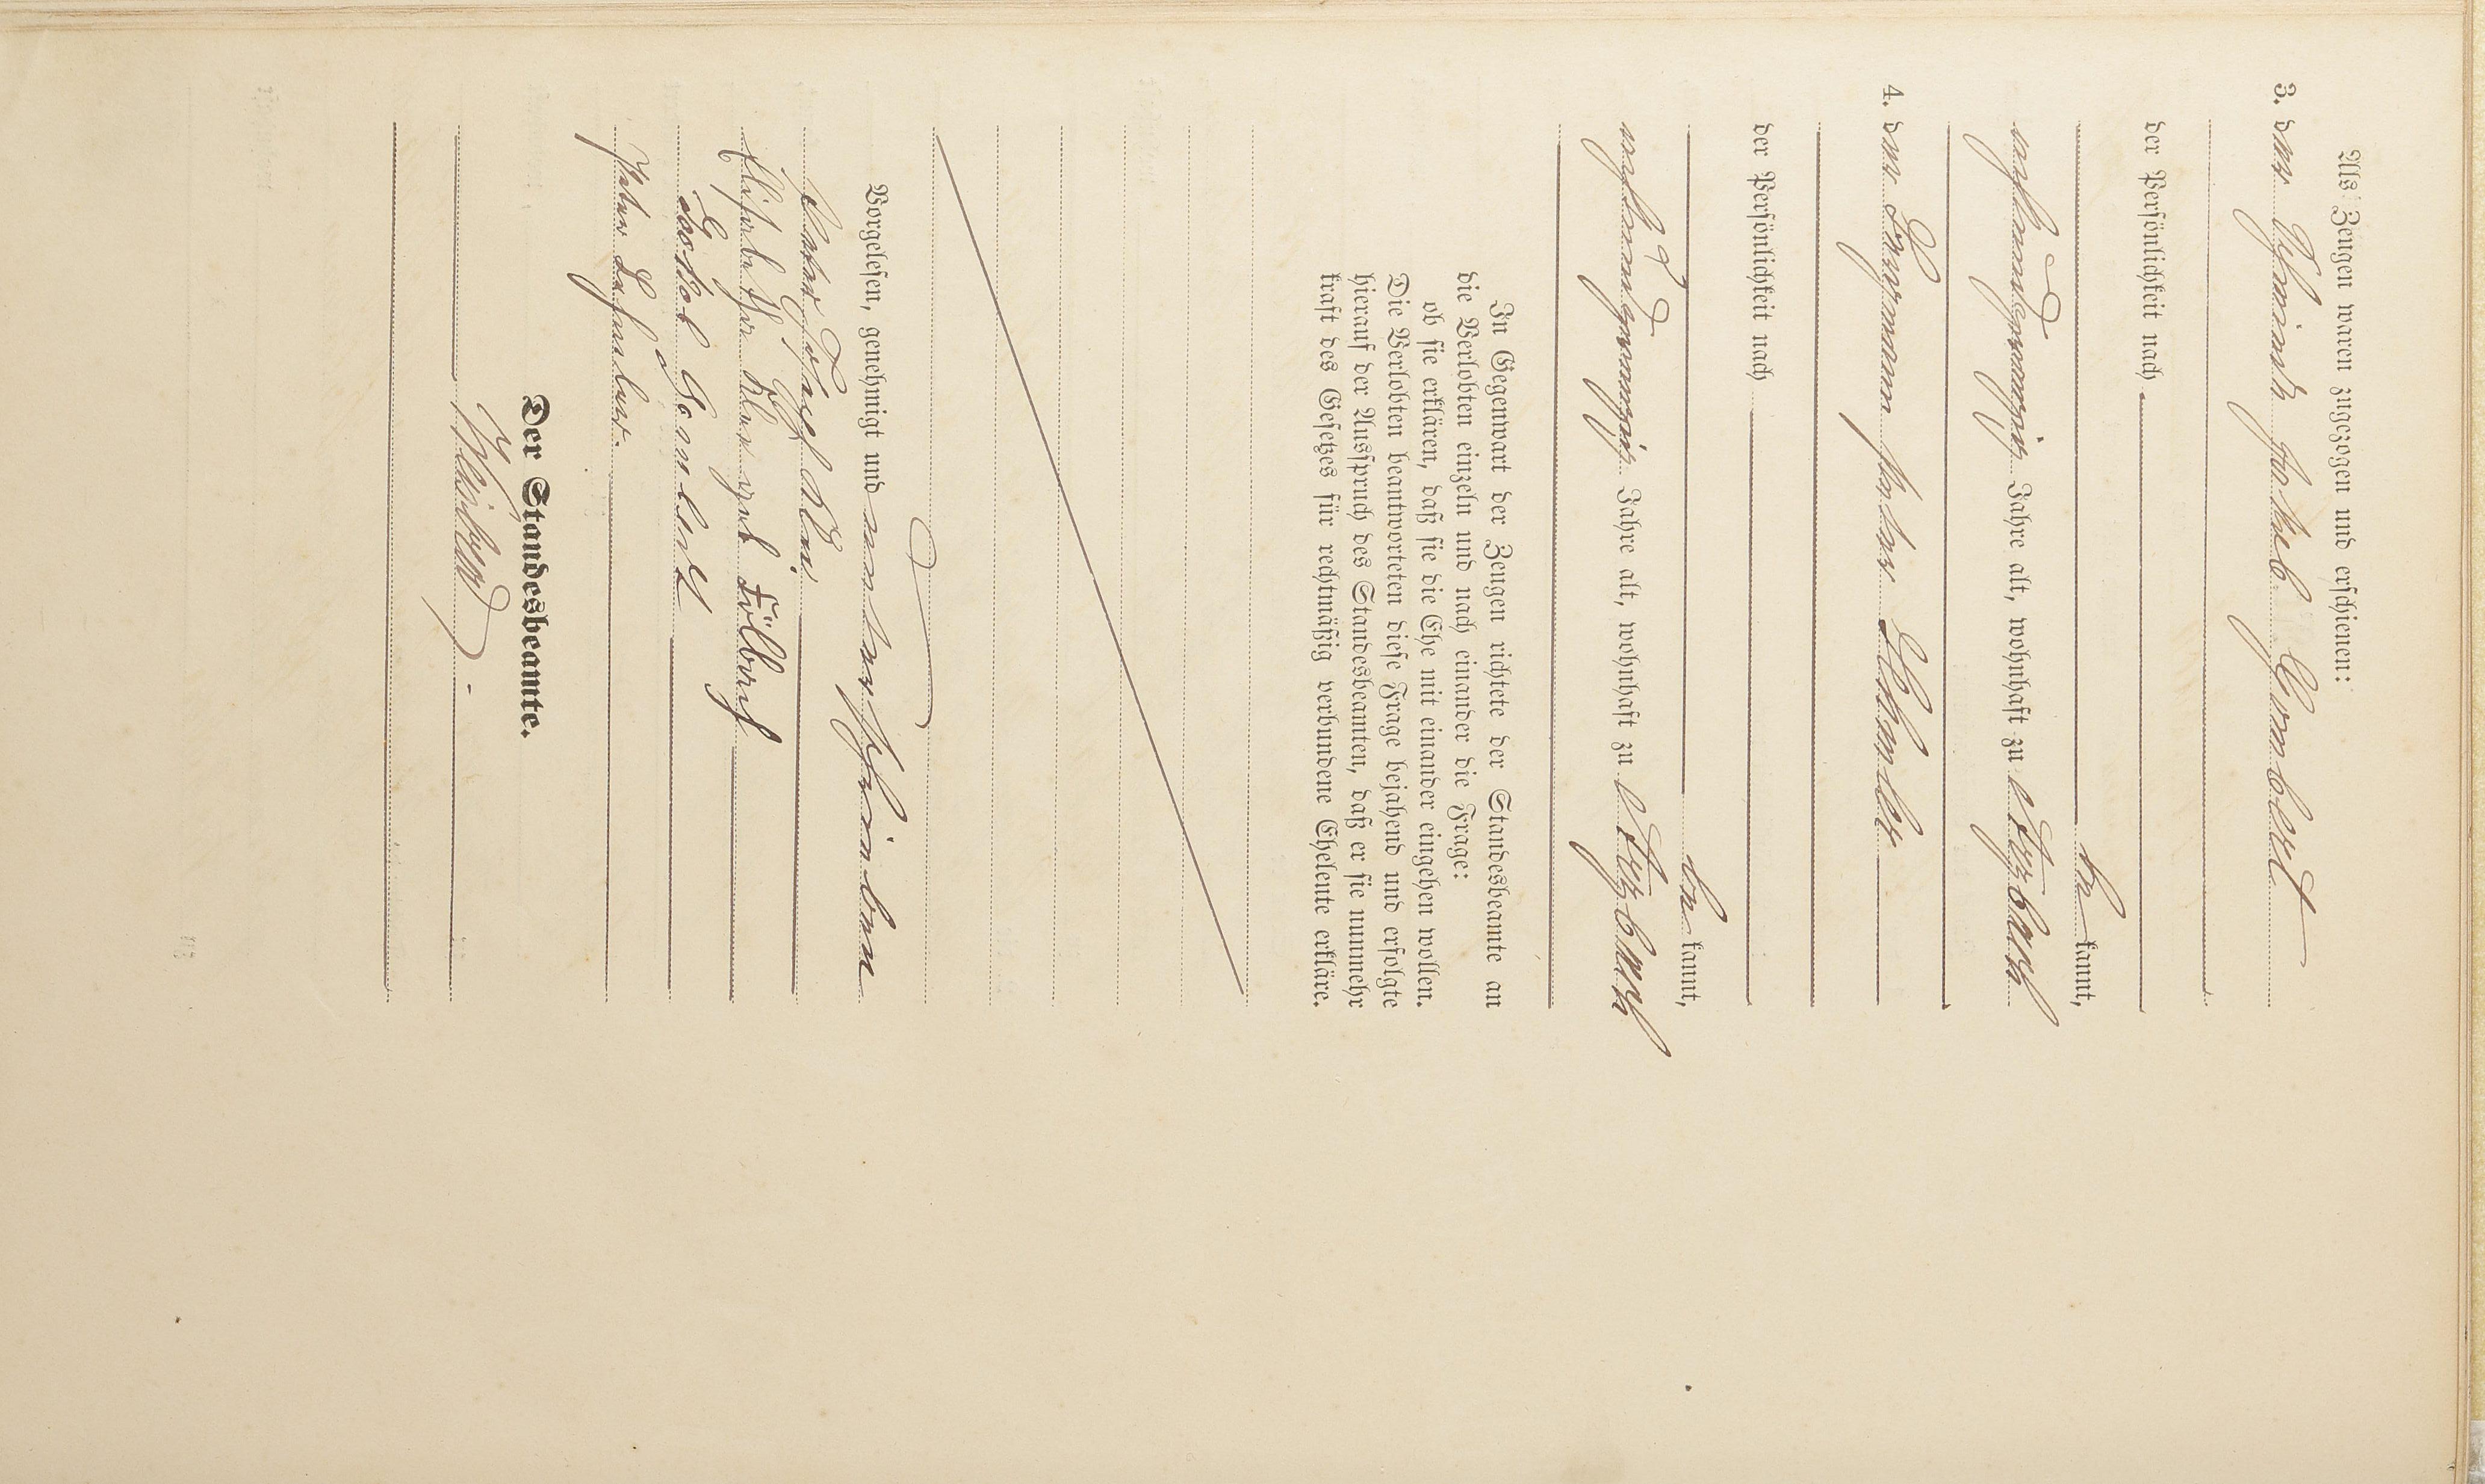 Als Zeugen waren zugezogen und erschienen:
3. der Schmied Jakob Gombert
der Persönlichkeit nach
be kannt,
Jahre alt, wohnhaft zu
4. der Bergmann Peter
der Persönlichkeit nach
be kannt,
Jahre alt, wohnhaft zu
In Gegenwart der Zeugen richtete der Standesbeamte an
die Verlobten einzeln und nach einander die Frage:
ob sie erklären, daß sie die Ehe mit einander eingehen wollen.
Die Verlobten beantworteten diese Frage bejahend und erfolgte
hierauf der Ausspruch des Standesbeamten, daß er sie nunmehr
kraft des Gesetzes für rechtmäßig verbundene Eheleute erkläre.
Vorgelesen, genehmigt und unterschrieben
Peter Josef Klein
Elisabetha Klein geb. Fölbach
Jacob Gombert
Peter
Der Standesbeamte.